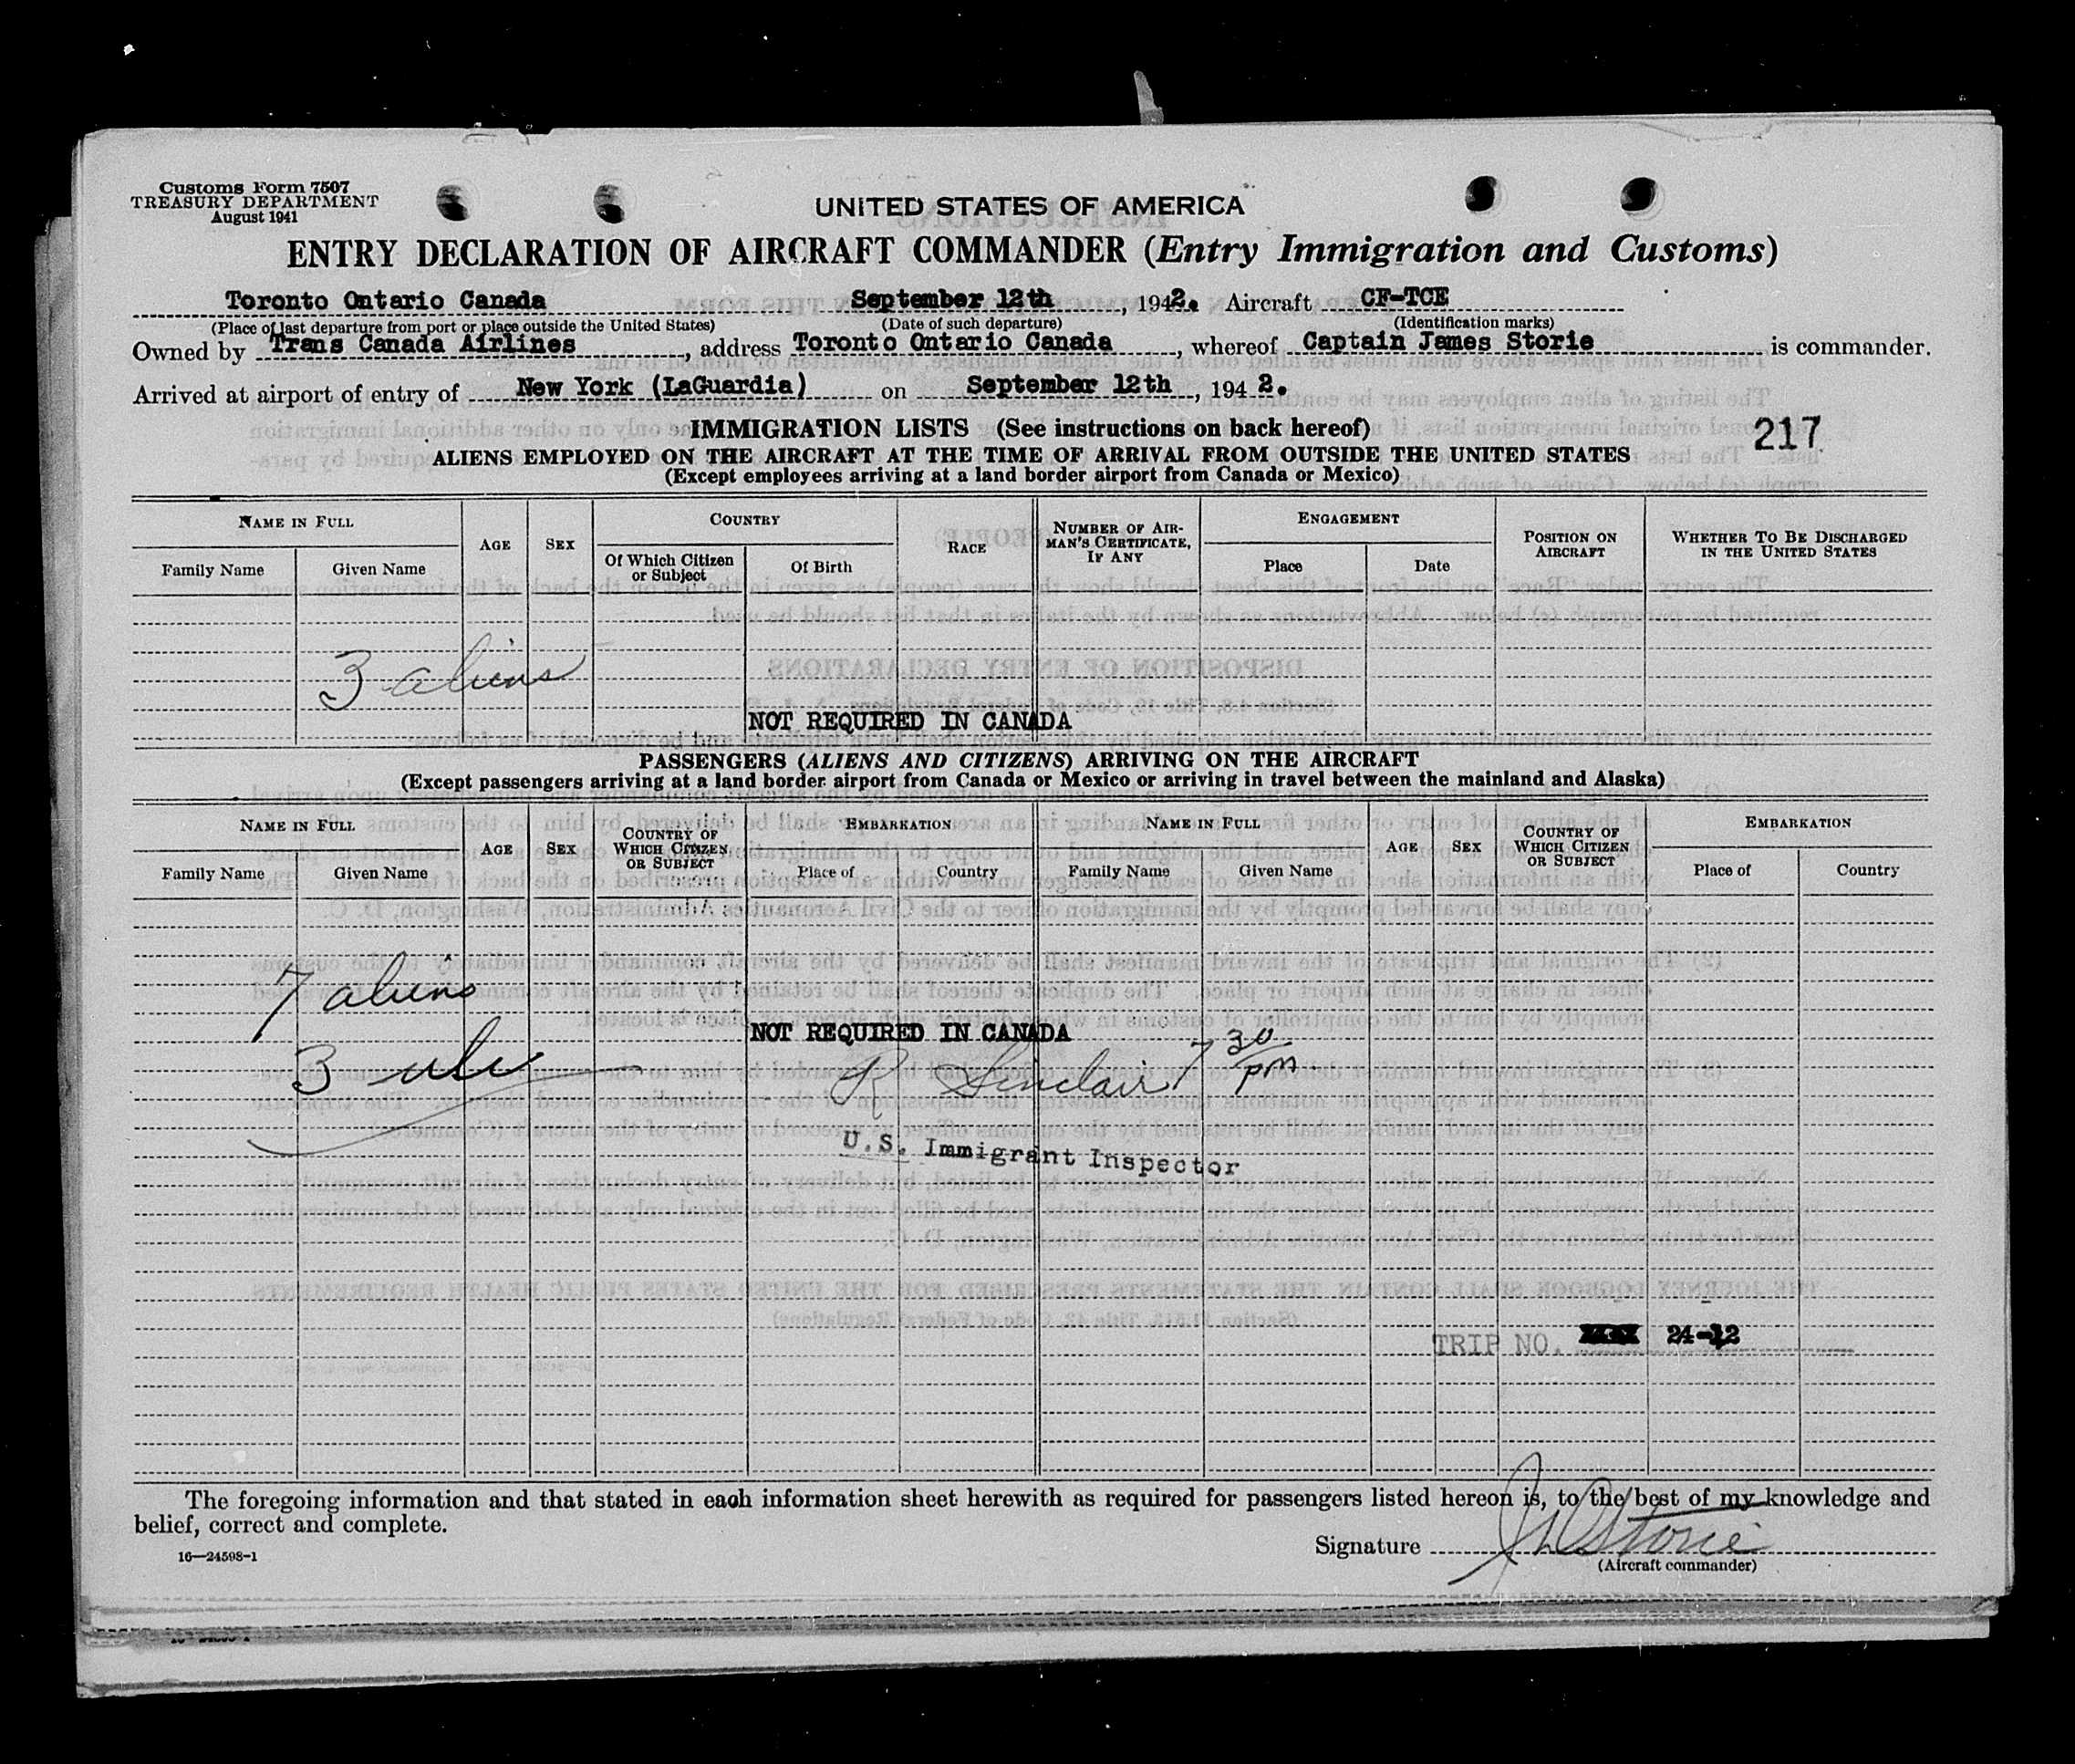 Customs Form 7507
TREASURY DEPARTMENT
August 1941
UNITED STATES OF AMERICA
ENTRY DECLARATION OF AIRCRAFT COMMANDER (Entry Immigration and Customs)
Toronto Ontario Canada September 12th, 1942. Aircraft CF-TCE
(Place of last departure from port or place outside the United States) (Date of such departure) (Identification marks)
Owned by Trans Canada Airlines, address Toronto Ontario Canada, whereof Captain James Storie is commander.
Arrived at airport of entry of New York (LaGuardia) on September 12th, 1942.
IMMIGRATION LISTS (See instructions on back hereof)
217
ALIENS EMPLOYED ON THE AIRCRAFT AT THE TIME OF ARRIVAL FROM OUTSIDE THE UNITED STATES
(Except employees arriving at a land border airport from Canada or Mexico)
NAME IN FULL AGE SEX COUNTRY RACE NUMBER OF AIRMAN'S CERTIFICATE, IF ANY ENGAGEMENT POSITION ON AIRCRAFT WHETHER TO BE DISCHARGED IN THE UNITED STATES
Family Name Given Name Of Which Citizen or Subject Of Birth Place Date
3 aliens
NOT REQUIRED IN CANADA
PASSENGERS (ALIENS AND CITIZENS) ARRIVING ON THE AIRCRAFT
(Except passengers arriving at a land border airport from Canada or Mexico or arriving in travel between the mainland and Alaska)
NAME IN FULL AGE SEX COUNTRY OF WHICH CITIZEN OR SUBJECT EMBARKATION NAME IN FULL AGE SEX COUNTRY OF WHICH CITIZEN OR SUBJECT EMBARKATION
Family Name Given Name Place of Country Family Name Given Name Place of Country
7 aliens
NOT REQUIRED IN CANADA
3
R Sinclair 7 30 pm.
U.S. Immigrant Inspector
TRIP NO. 24-12
The foregoing information and that stated in each information sheet herewith as required for passengers listed hereon is, to the best of my knowledge and
belief, correct and complete.
Signature Storie
16—24598-1
(Aircraft commander)